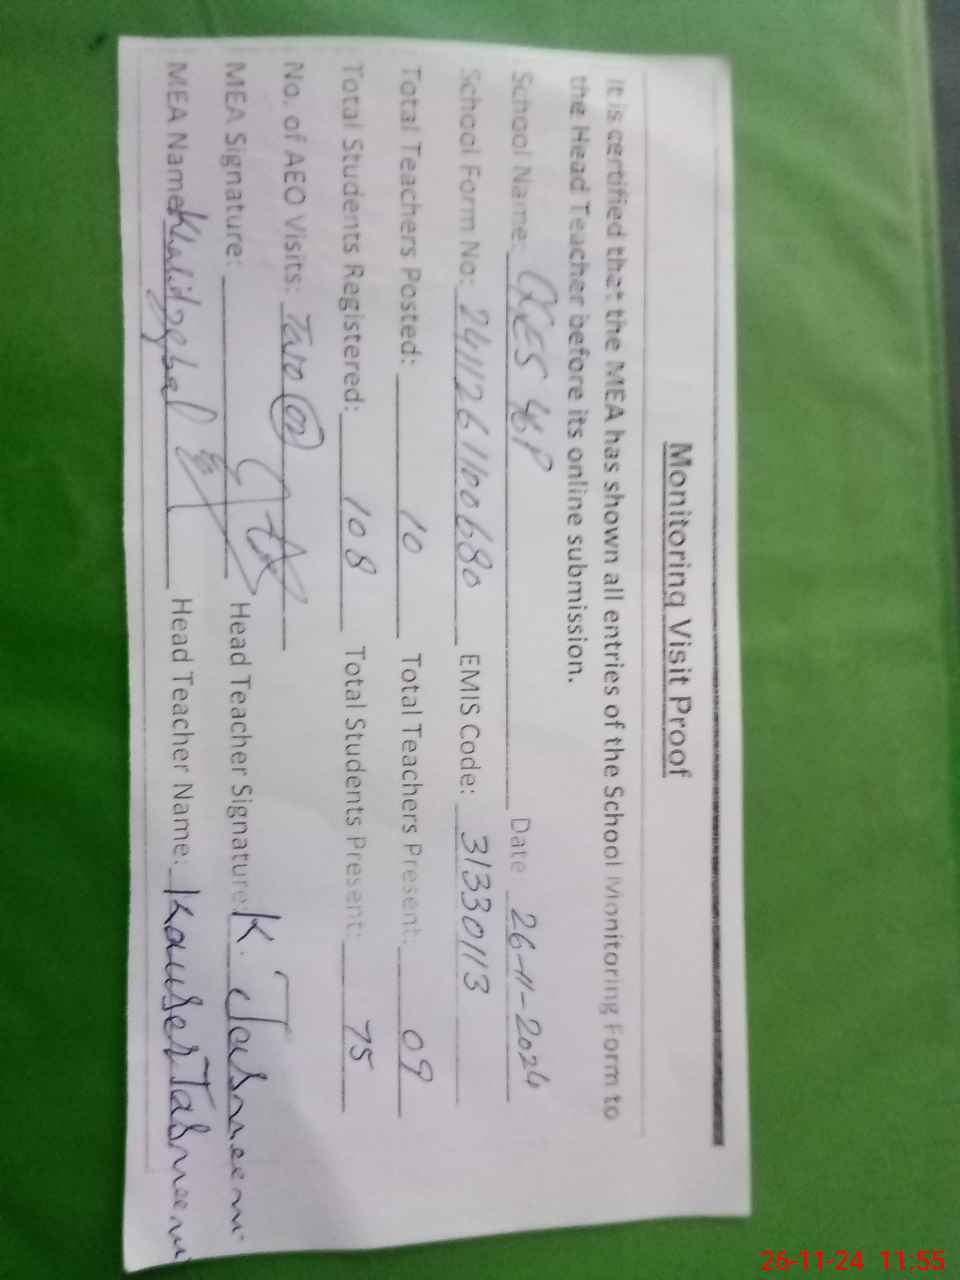 Monitoring Visit Proof
It is certified that the MEA has shown all entries of the School Monitoring Form to
the Head Teacher before its online submission.
School Name: Date: 26-11-2024
School Form No: 2411261100680 EMIS Code: 31330113
Total Teachers Posted: 10 Total Teachers Present: 09
Total Students Registered: 108 Total Students Present: 75
No. of AEO Visits: Two
MEA Signature: Head Teacher Signature: K. Tasneem
MEA Name: Khalid Head Teacher Name: Kauser Tasneem
26-11-24 11:55